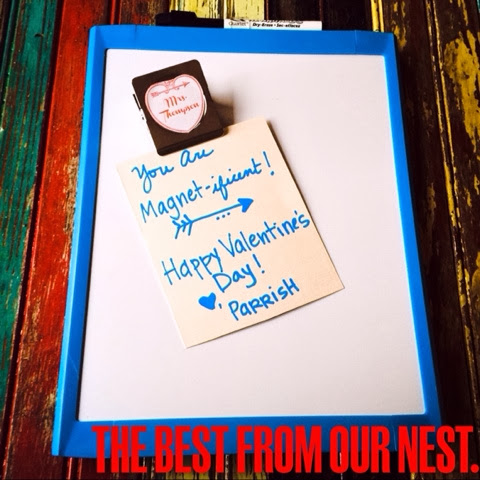 Quartet
Dry-Erase
Mrs.
Thompson
You Are
Magnet-ificent!
Happy Valentine's
Day!
PARRISH
THE BEST FROM OUR NEST.